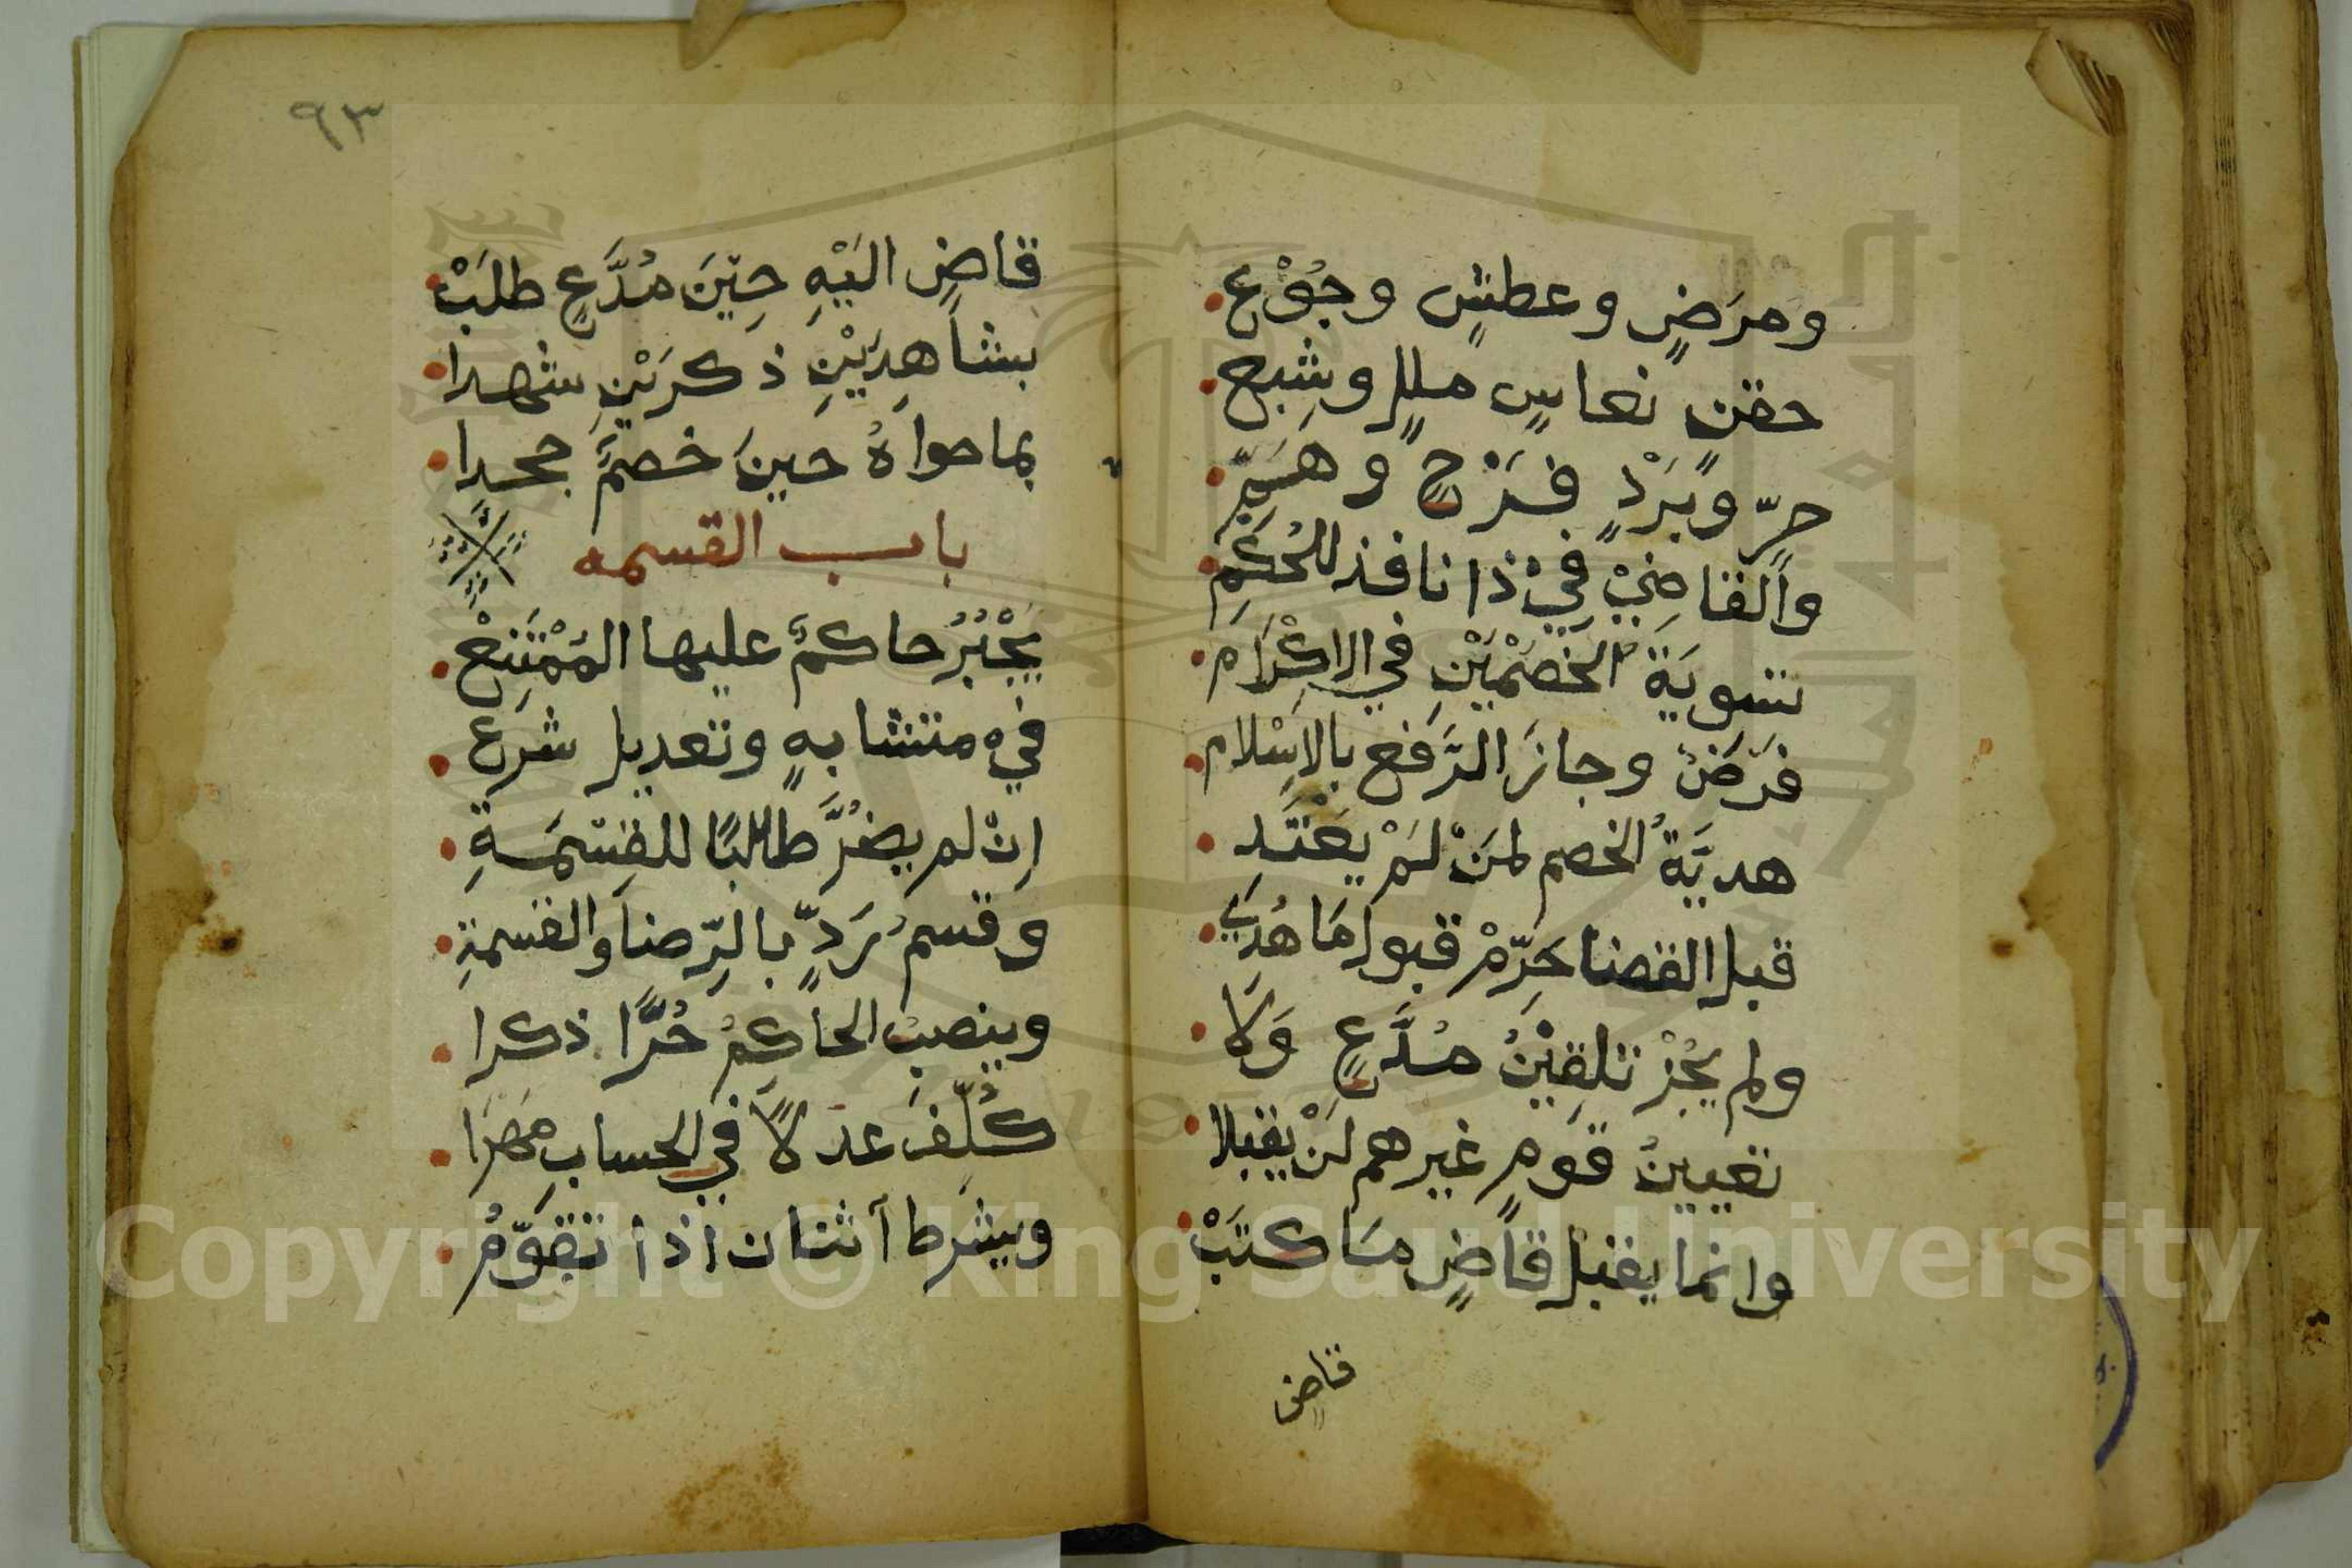 ومرَضٍ وعطشٍ وجُوْعِ
حقنٍ نعاسٍ مللٍ وشِبعِ
حرٍّ وبَرْدٍ فَرَحٍ وهَمِّ
والقاضِيْ فِيْ ذا نافذ للحُكْمِ
تسويَةُ الخَصْمَيْنِ في الاِكْرَامِ
فَرَضٌ وجازَ الرَّفع بالاِسْلام
هديَّةُ الخصم لمَنْ لَمْ يَعْتَدِ
قبل القضا حَرِّمْ قبول مَا هُدِي
ولم يَجُزْ تلقِيْنُ مُدَّعٍ وَلَا
تعيينُ قومٍ غيرهم لَنْ يقبلا
وانما يقبل قاضٍ مَا كتَبْ
قاضٍ
٩٣
قاضٍ اليْهِ حِيْنَ مُدَّعٍ طلَبْ
بشاهِدَيْنِ ذكرَيْنِ شهدا
بما حواهُ حينَ خصمٌ جحدا
باب القسمه
يَجْبُرُ حاكمٌ عليها المُمْتَنِعْ
في متشابهٍ وتعديل شرع
اِنْ لم يضُرَّ طالبًا للقِسْمَةِ
وقسمُ رَدٍّ بالرِّضا والقسمةِ
وينصبُ الحاكِمُ حُرًّا ذكرا
كُلِّفَ عدلًا في الحساب مَهَرَا
ويشرط اثنان اذا تقوِّمُ